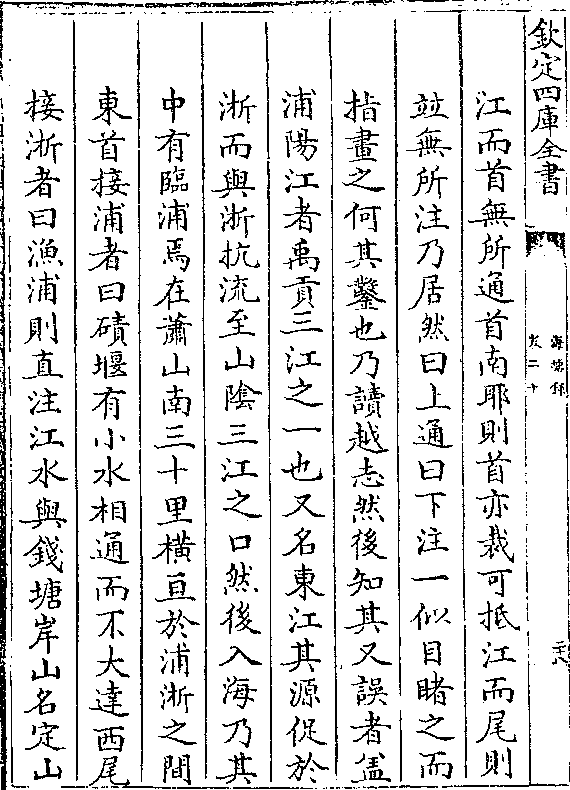 欽定四庫全書
江而首無所通首南耶則首亦裁可抵江而尾則
並無所注乃居然曰上通曰下注一似目睹之而
指畫之何其鑿也乃讀越志然後知其又誤者盖
浦陽江者禹貢三江之一也又名東江其源促於
浙而與浙抗流至山隂三江之口然後入海乃其
中有臨浦焉在蕭山南三十里橫亘於浦浙之間
東首接浦者曰磧堰有小水相通而不大達西尾
接浙者曰漁浦則直注江水與錢塘岸山名定山